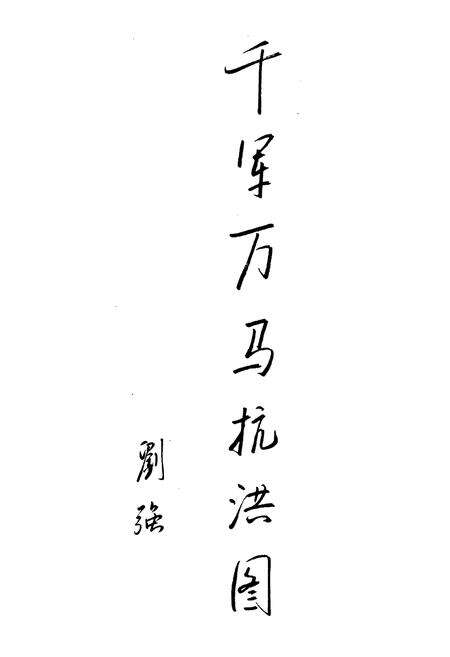 千军万马抗洪图
劉强